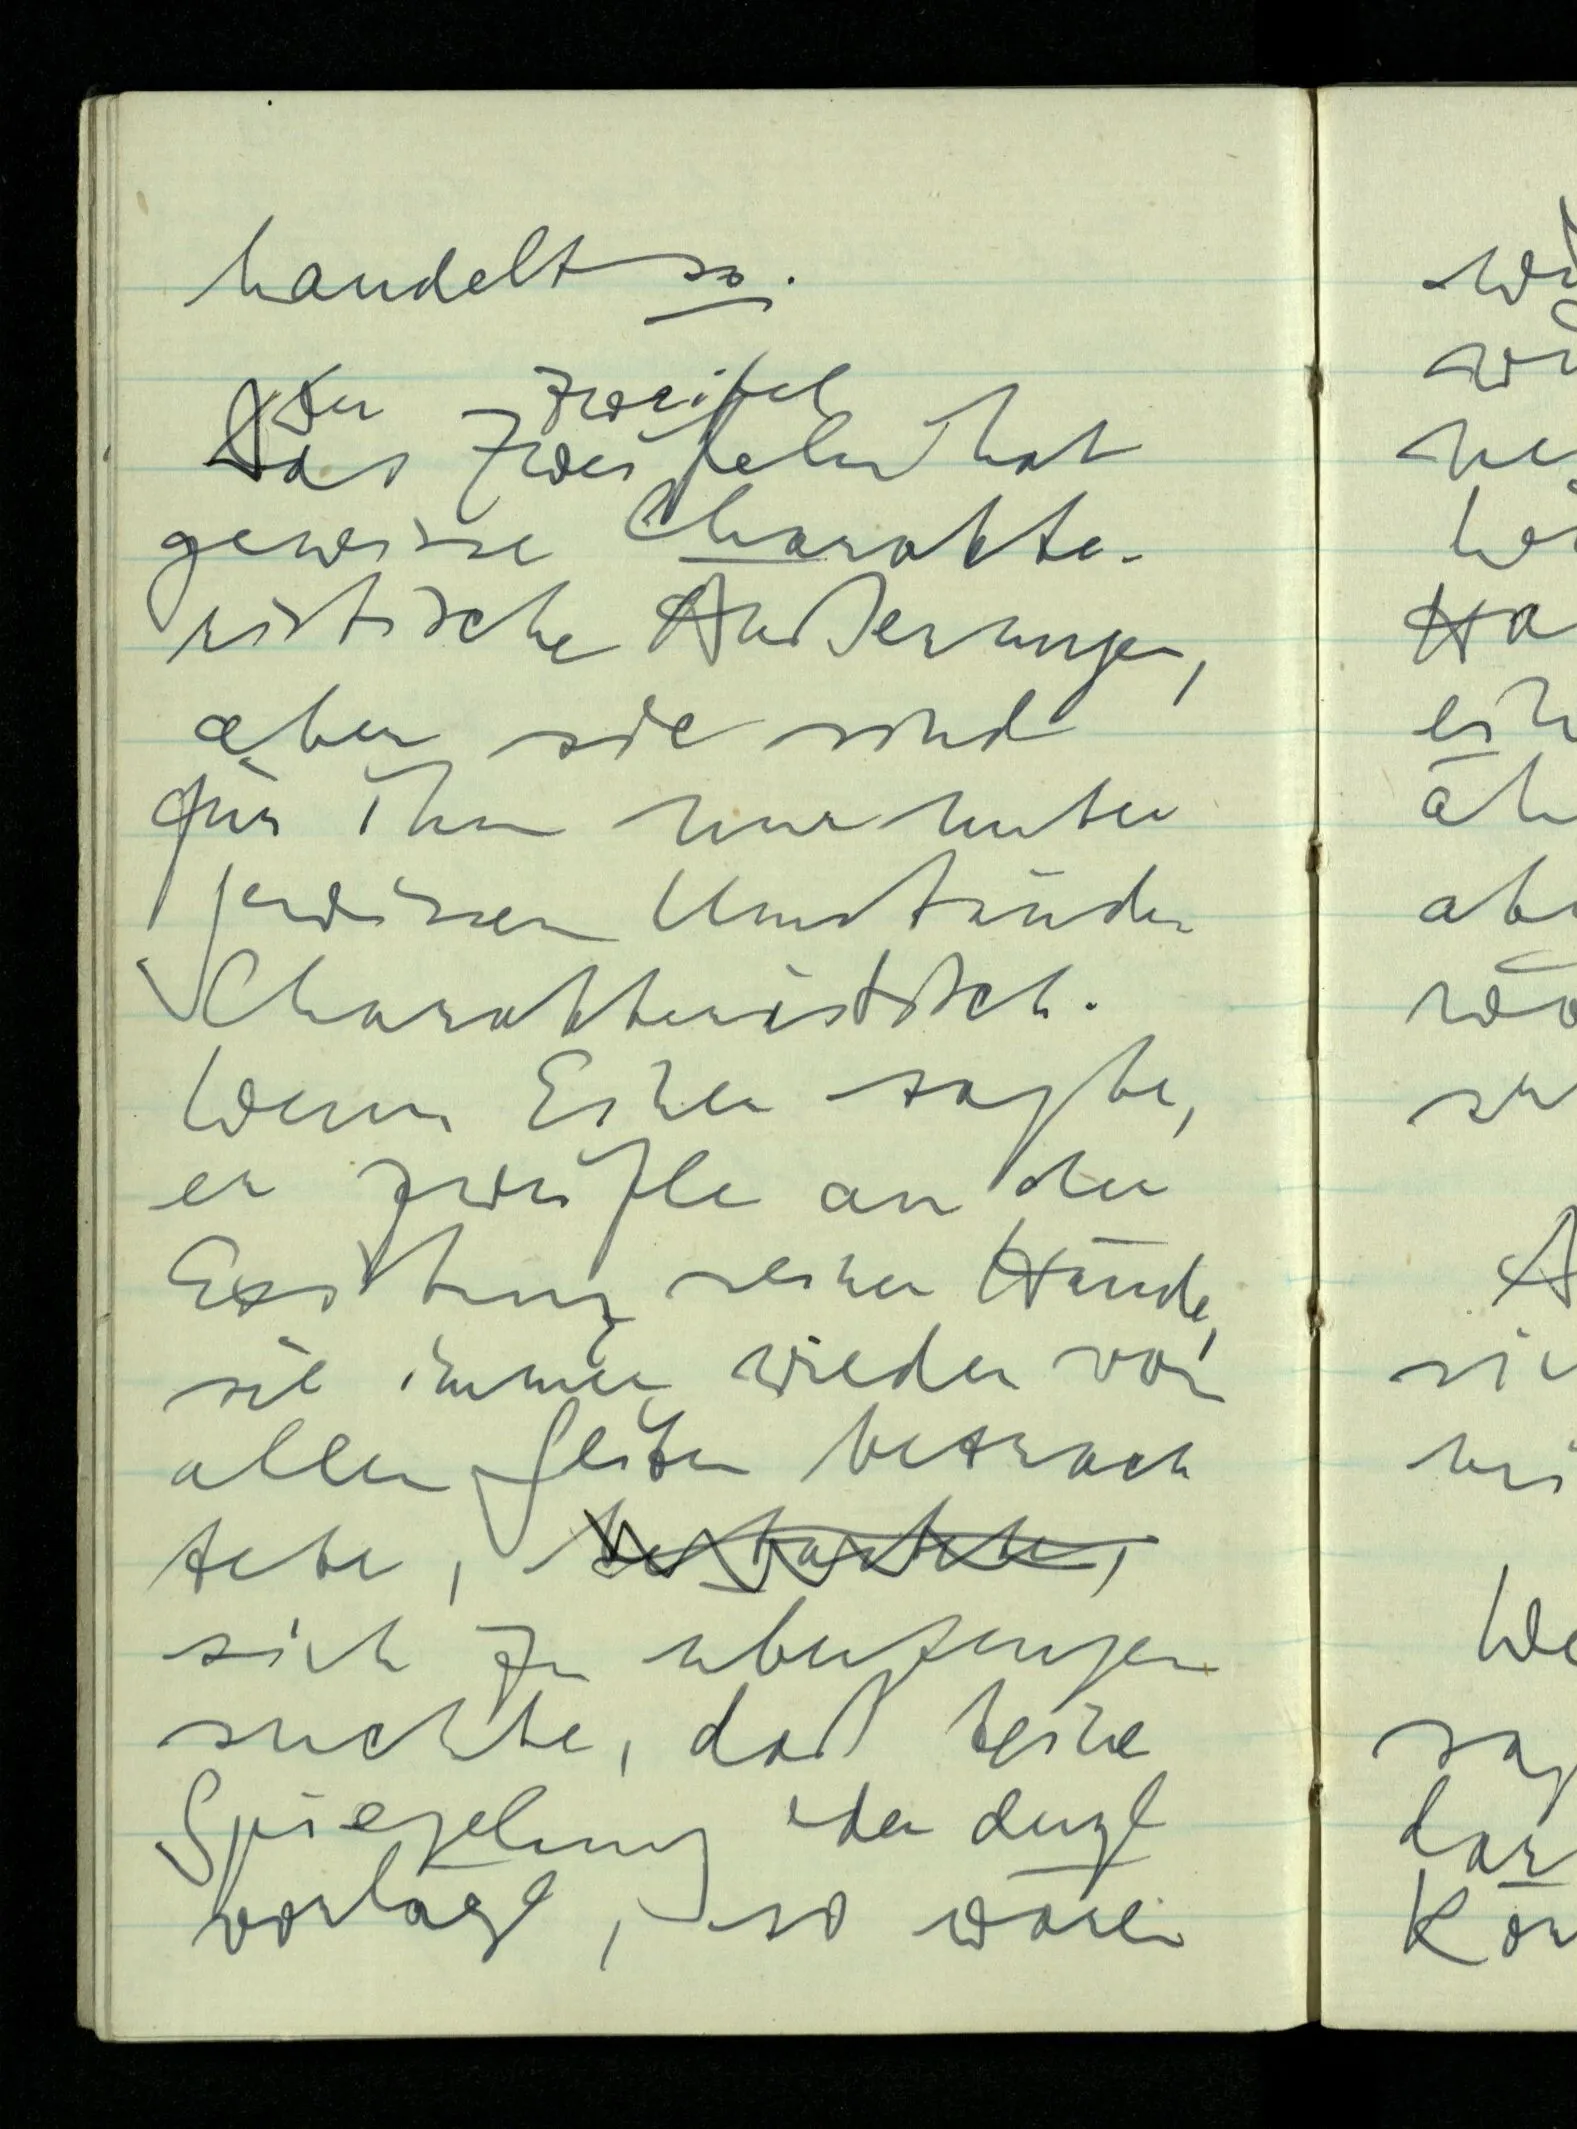 handelt so.
Der Zweifel
Das Zweifeln hat
gewisse charakte-
ristische Äußerungen,
aber sie sind
für ihn nur unter
gewissen Umständen
charakteristisch.
Wenn Einer sagte,
er zweifle an der
Existenz seiner Hände,
sie immer wieder von
allen Seiten betrach
tete,
sich zu überzeugen
suchte, daß keine
Spiegelung oder dergl
vorläge, so wären